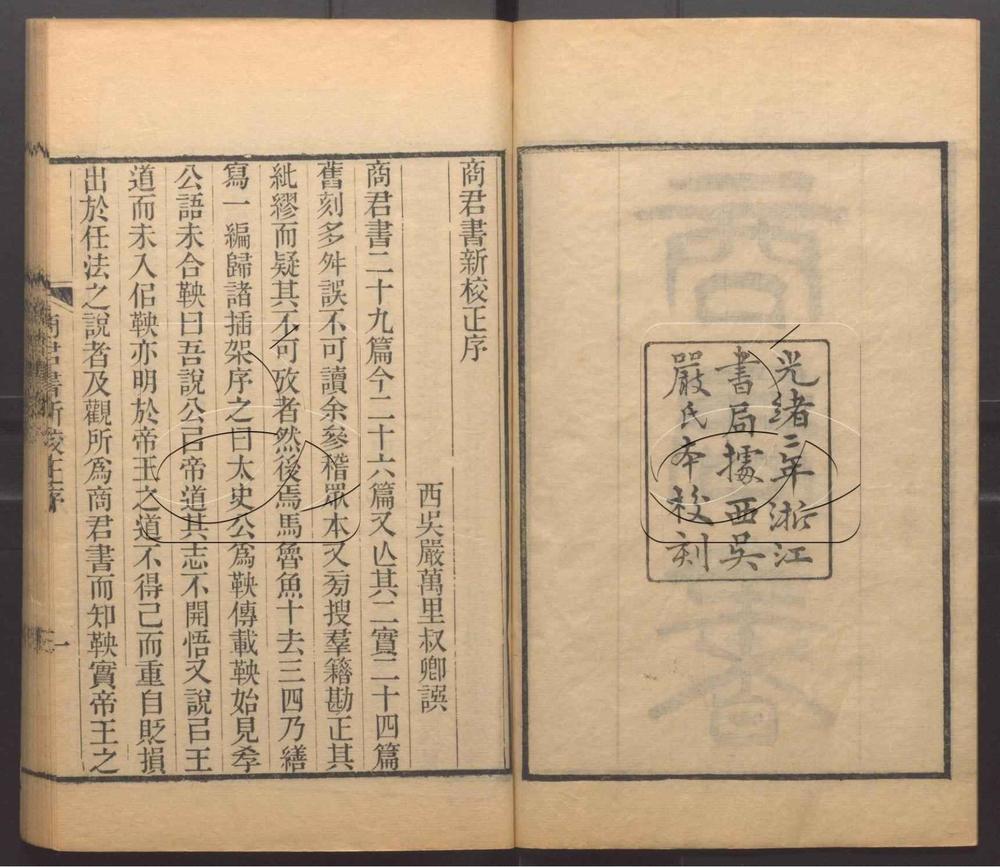 光緒二年浙江
書局據西吳
嚴氏本校刻
商君書新校正序
西吳嚴萬里叔卿譔
商君書二十九篇今二十六篇又亾其二實二十四篇
舊刻多舛誤不可讀余參稽眾本又㫄搜羣籍勘正其
紕繆而疑其不可攷者然後焉馬魯魚十去三四乃繕
寫一編歸諸插架序之曰太史公爲鞅傳載鞅始見孝
公語未合鞅曰吾說公㠯帝道其志不開悟又說㠯王
道而未入㠯鞅亦明於帝王之道不得已而重自貶損
出於任法之說者及觀所爲商君書而知鞅實帝王之
商君書新校正序
一